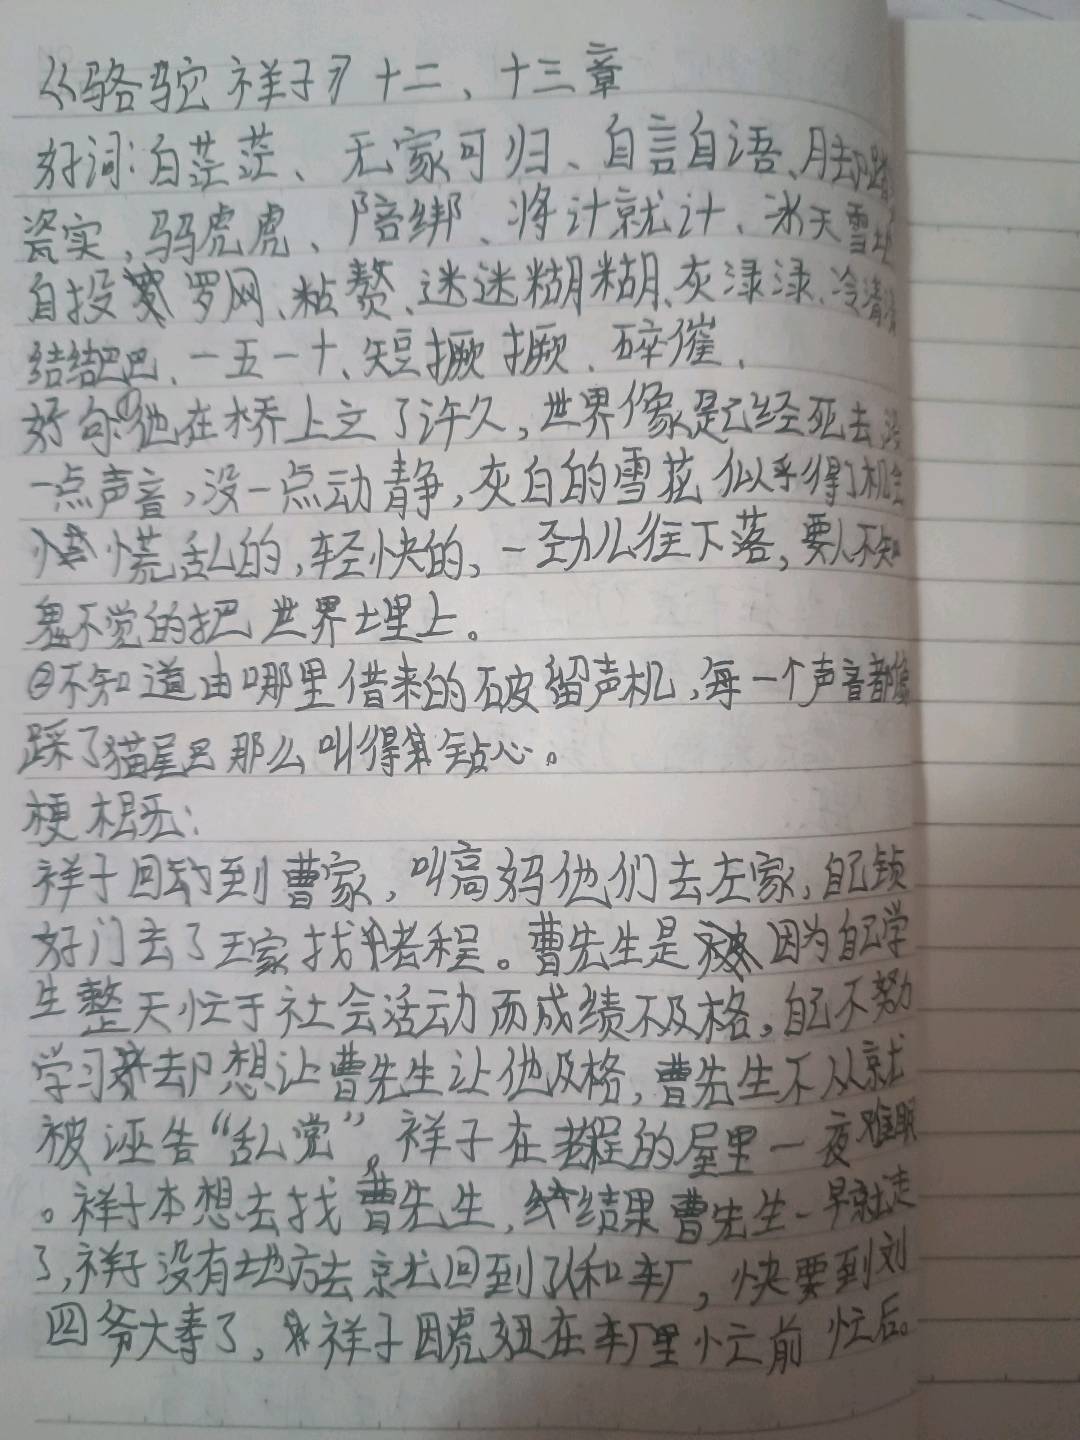 《骆驼祥子》十二、十三章
好词:白茫茫、无家可归、自言自语、
瓷实、马虎虎、陪绑、将计就计、冰天雪地
自投罗网、粘赘、迷迷糊糊、灰渌渌、冷清清
结结巴巴、一五一十、短撅撅、碎催、
好句①他在桥上立了许久,世界像是已经死去,没
一点声音,没一点动静,灰白的雪花似乎得了机会
慌乱的,轻快的,一劲儿往下落,要人不知
鬼不觉的把世界埋上。
②不知道由哪里借来的破留声机,每一个声音都像
踩了猫尾巴那么叫得钻心。
梗概:
祥子回到曹家,叫高妈他们去左家,自己锁
好门去了王家找老程。曹先生是因为自己学
生整天忙于社会活动而成绩不及格,自己不努力
学习却想让曹先生让他及格,曹先生不从就
被诬告“乱党”,祥子在老程的屋里一夜难眠
。祥子本想去找曹先生,结果曹先生一早就走
了,祥子没有地方去就回到了人和车厂,快要到刘
四爷大寿了,祥子因虎妞在车厂里忙前忙后。